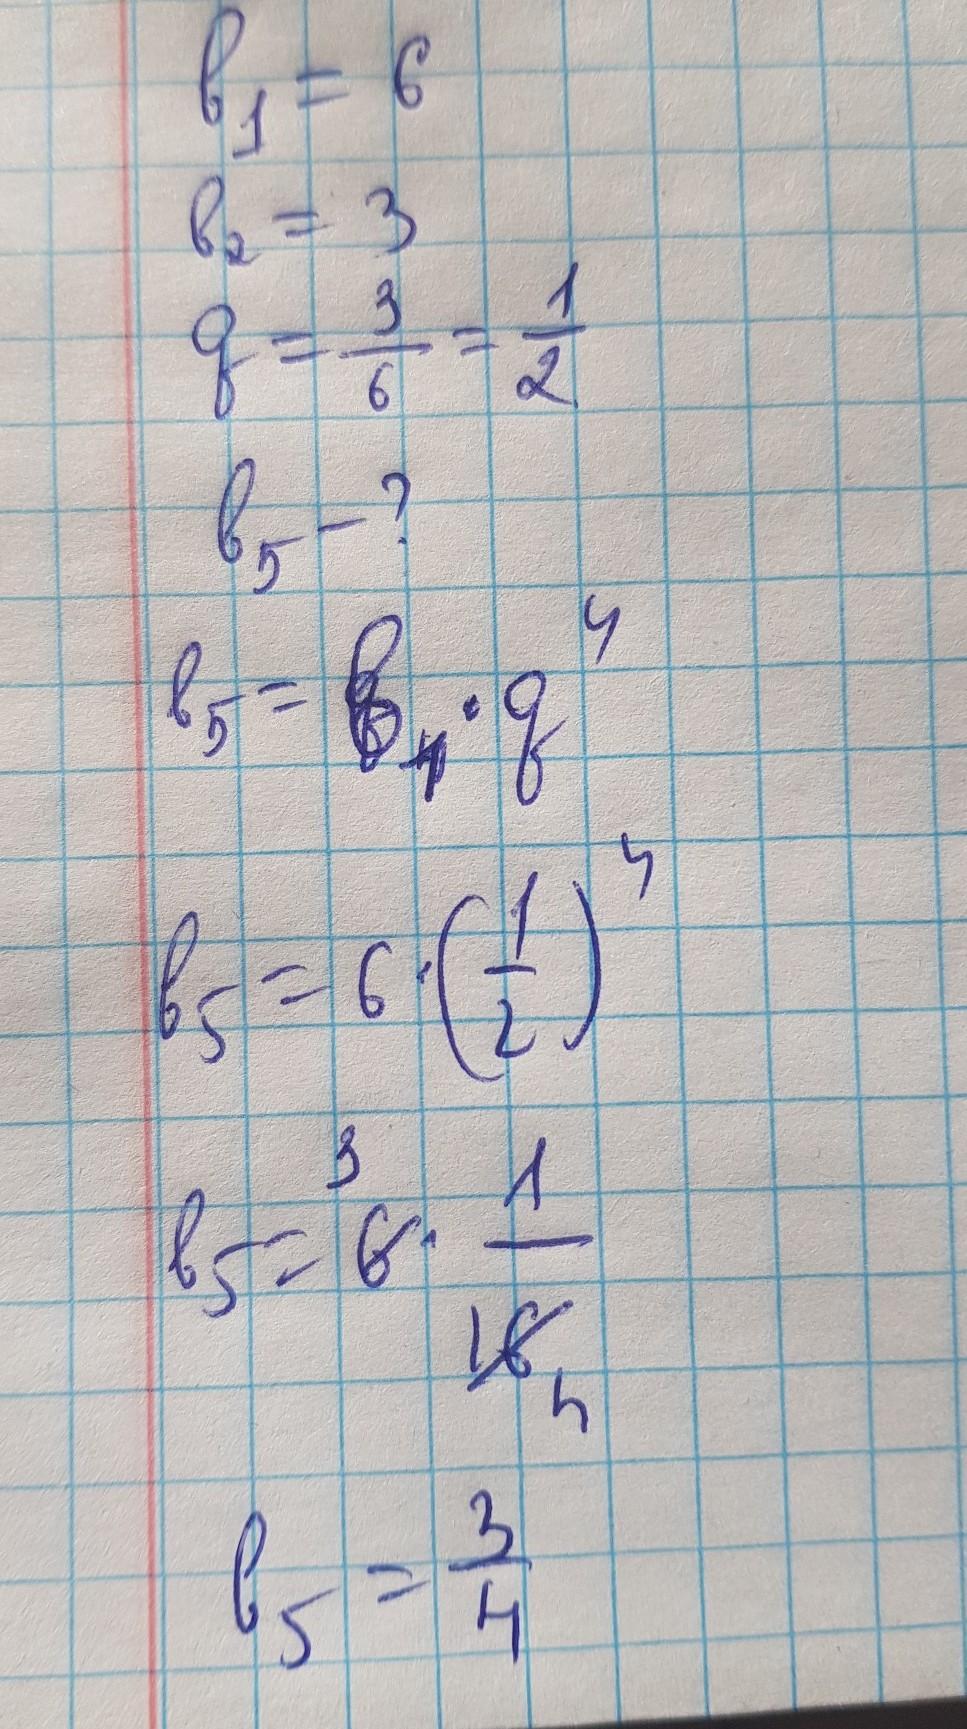 b₁ = 6
b₂ = 3
q = 3/6 = 1/2
b₅ - ?
b₅ = b₁ · q⁴
b₅ = 6 · (1/2)⁴
b₅ = 6 3 · 1/16 4
b₅ = 3/4